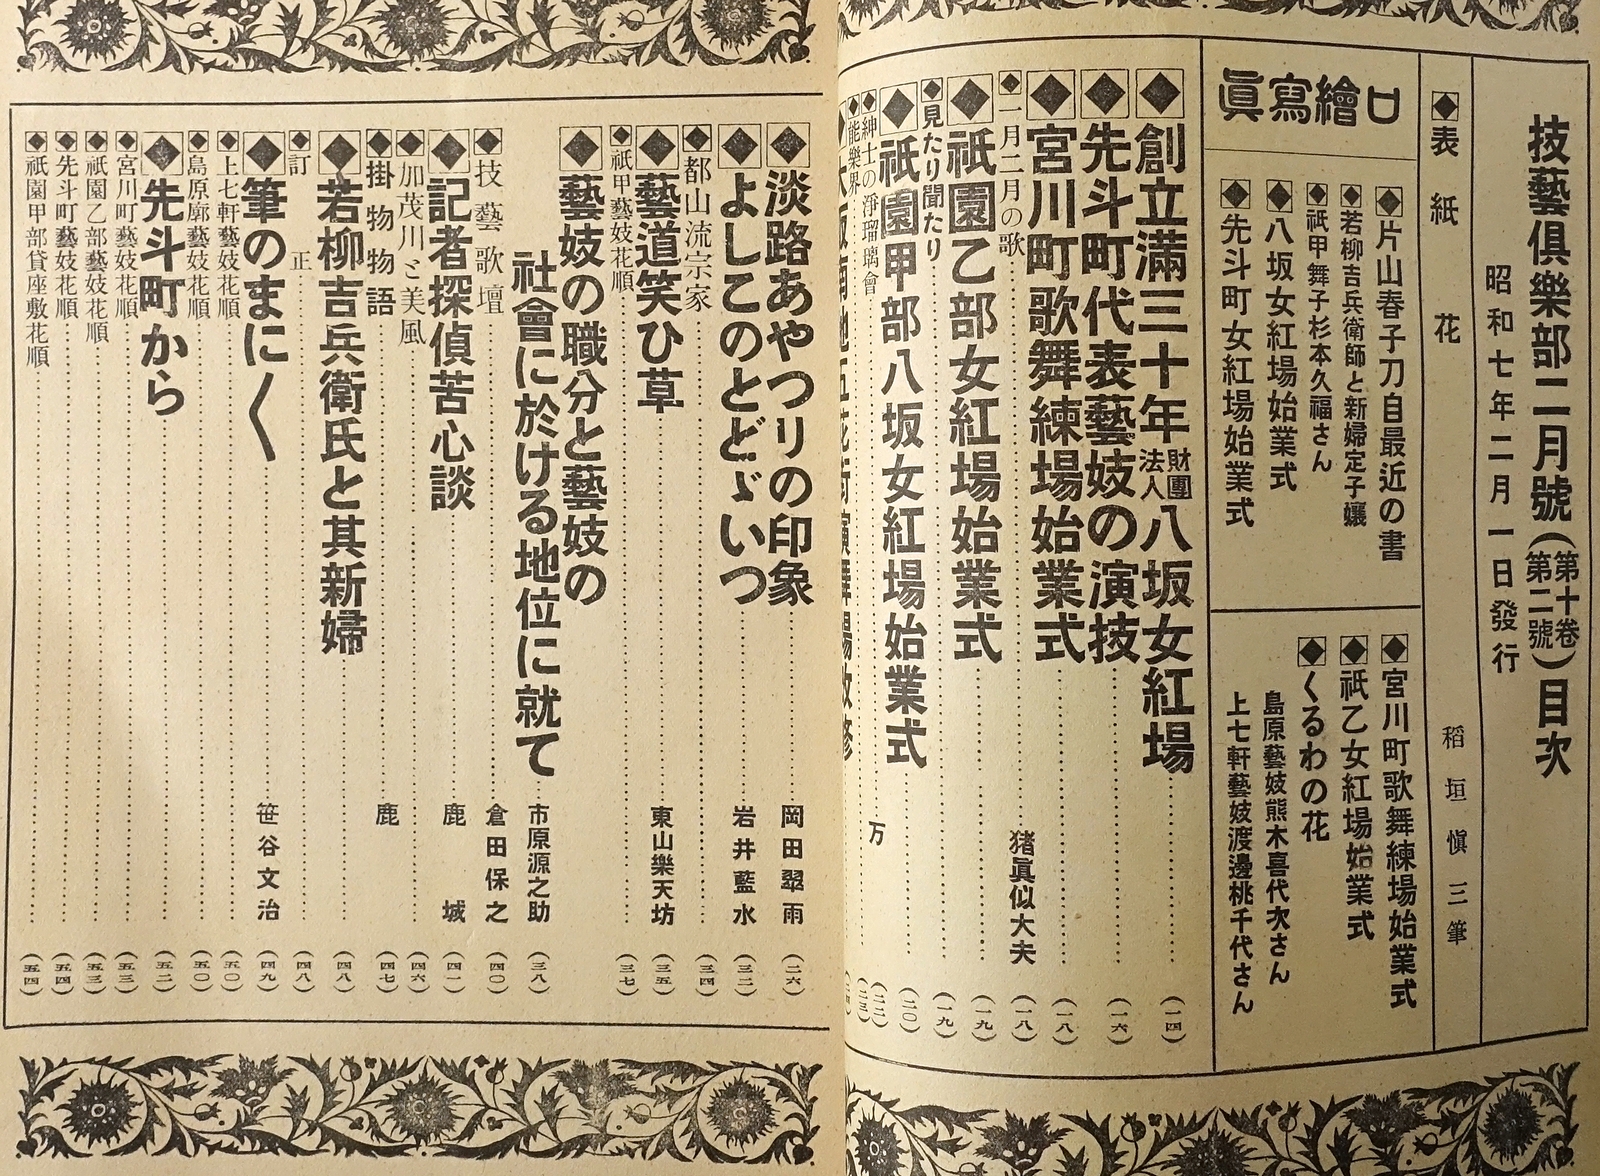 技藝倶樂部二月號(第十卷第二號)目次
昭和七年二月一日發行
◆表紙 花 稻垣愼三筆
口繪寫眞
◆片山春子刀自最近の書
◆若柳吉兵衛師と新婦定子孃
◆祇甲舞子杉本久福さん
◆八坂女紅場始業式
◆先斗町女紅場始業式
◆宮川町歌舞練場始業式
◆祇乙女紅場始業式
◆くるわの花
島原藝妓熊木喜代次さん
上七軒藝妓渡邊桃千代さん
◆創立滿三十年財團法人八坂女紅場(一四)
◆先斗町代表藝妓の演技(一六)
◆宮川町歌舞練場始業式(一八)
◆一月二月の歌 猪眞似大夫(一八)
◆祇園乙部女紅場始業式(一九)
◆見たり聞たり(一九)
◆祇園甲部八坂女紅場始業式(二〇)
◆紳士の淨瑠璃會 万(二二)
◆能樂界(二三)
◆淡路あやつりの印象 岡田翠雨(二六)
◆よしこのとどゞいつ 岩井藍水(三二)
◆都山流宗家(三四)
◆藝道笑ひ草 東山樂天坊(三五)
◆祇甲藝妓花順(三七)
◆藝妓の職分と藝妓の
社會に於ける地位に就て 市原源之助(三八)
◆技藝歌壇 倉田保之(四〇)
◆記者探偵苦心談 鹿城(四一)
◆加茂川と美風(四六)
◆掛物物語 鹿(四七)
◆若柳吉兵衛氏と其新婦(四八)
◆訂正(四八)
◆筆のまに〱 笹谷文治(四九)
◆上七軒藝妓花順(五〇)
◆島原廓藝妓花順(五〇)
◆先斗町から(五二)
◆宮川町藝妓花順(五三)
◆祇園乙部藝妓花順(五三)
◆先斗町藝妓花順(五四)
◆祇園甲部貸座敷花順(五四)